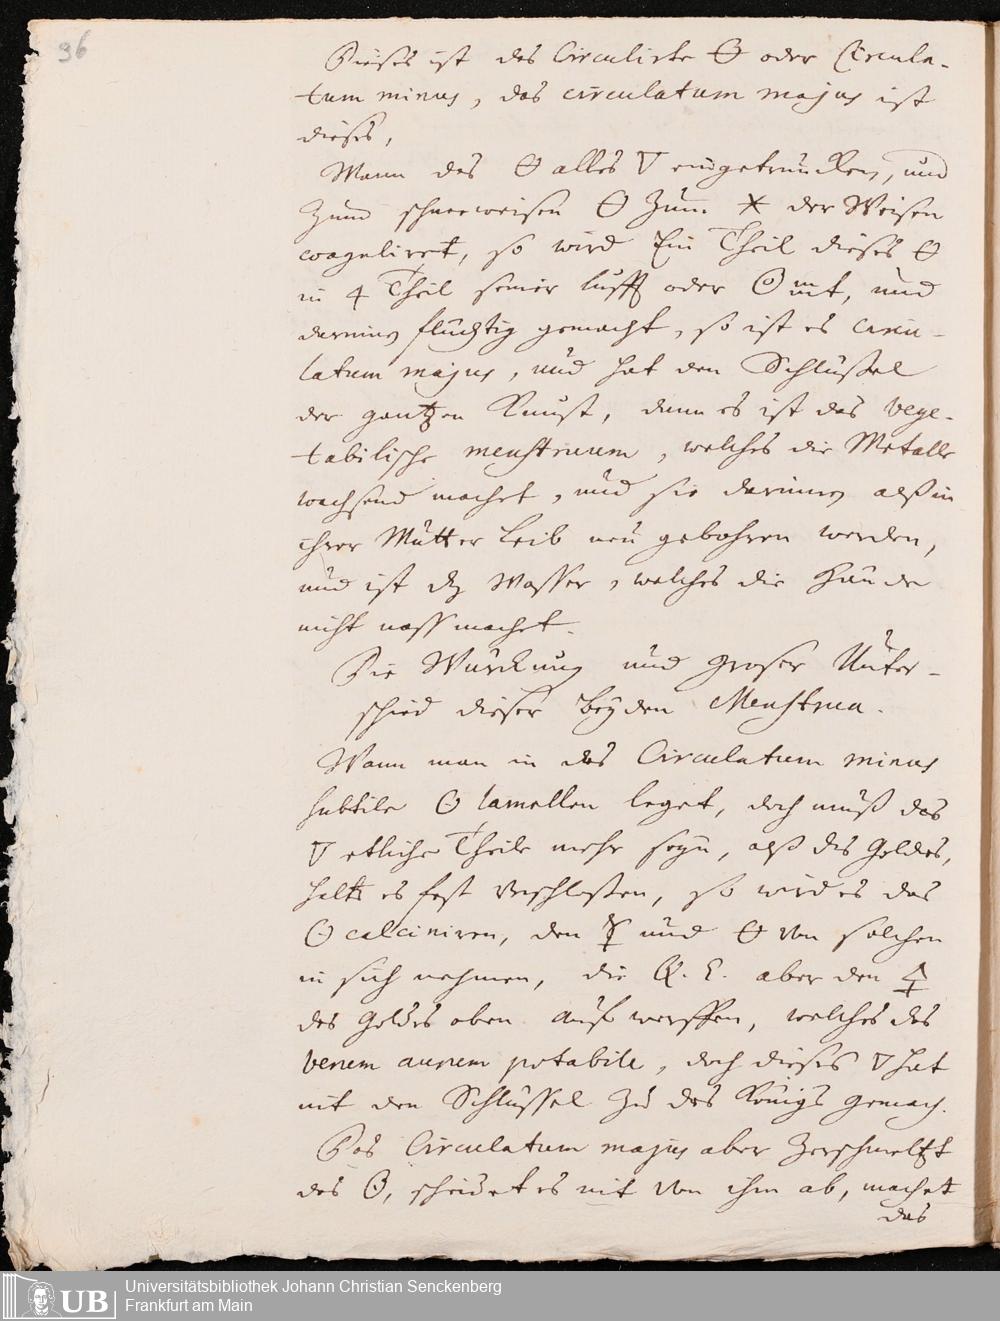 96
Dieses ist das Circulirte 🜔 oder Circula-
tum minus, das circulatum majus ist
dieses,
Wann das 🜔 alles 🜄 eingetruncken, und
zum schneeweisen 🜔 zum ✶ der Weisen
coagulirt, so wird Ein Theil dieses 🜔
in 4 Theil seiner lufft oder, und
darinnen flüchtig gemacht, so ist es circu-
latum majus, und hat den Schlüßel
der gantzen Kunst, dann es ist das vege-
tabilische menstruum, welches die Metalle
wachsend machet, und sie darinnen alß in
ihrer Mutter Leib neu gebohren werden,
und ist dz Wasser, welches die Hände
nicht nass machet.
Die Würckung und groser Unter-
schied dieser beyden Menstrua.
Wann man in das Circulatum minus
subtile ☉ lamellen leget, doch muß das
🜄 etliche Theile mehr seyn, alß des Goldes,
halts es fest verschloßen, so wird es das
☉ calciniren, den 🜍 und 🜔 von solchen
in sich nehmen, die Q. E. aber den 🜍
des Goldes oben auf werffen, welches das
verum aurum potabile, doch dieses 🜄 hat
nit den Schlüssel zu des Königs gemach.
Das Circulatum majus aber zerschmeltzt
das ☉, scheidet es nit von ihm ab, machet
das
UB
Universitätsbibliothek Johann Christian Senckenberg
Frankfurt am Main